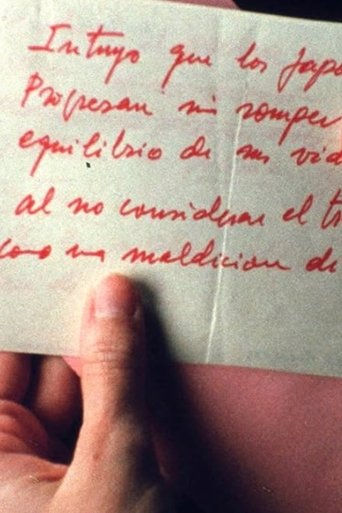 Intuyo que los Japo
Progresan sin romper
equilibrio de sus vid
al no considerar el tr
como una maldicion de